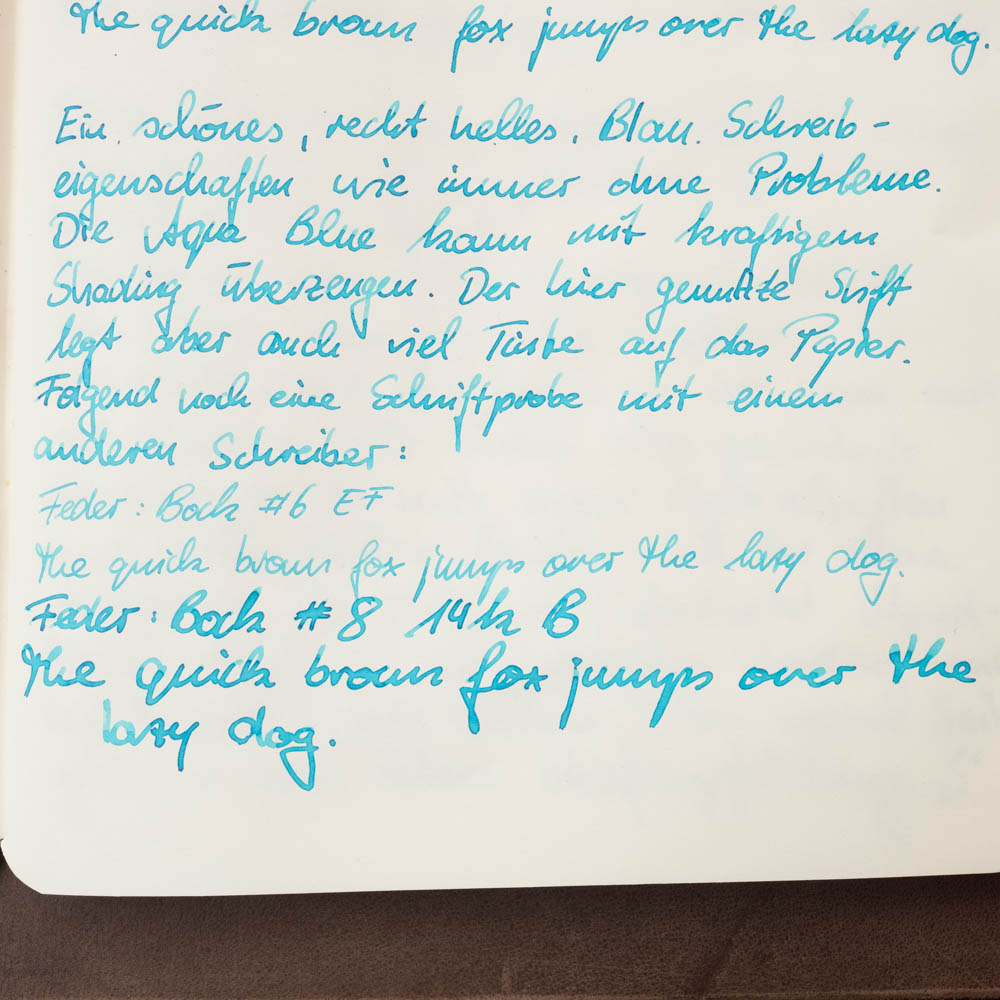 The quick brown fox jumps over the lazy dog.
Ein schönes, recht helles, Blau. Schreib-
eigenschaften wie immer ohne Probleme.
Die Aqua Blue kann mit kräftigem
Shading überzeugen. Der hier genutzte Stift
legt aber auch viel Tinte auf das Papier.
Folgend noch eine Schriftprobe mit einem
anderen Schreiber:
Feder: Bock #6 EF
The quick brown fox jumps over the lazy dog.
Feder: Bock #8 14k B
The quick brown fox jumps over the
lazy dog.